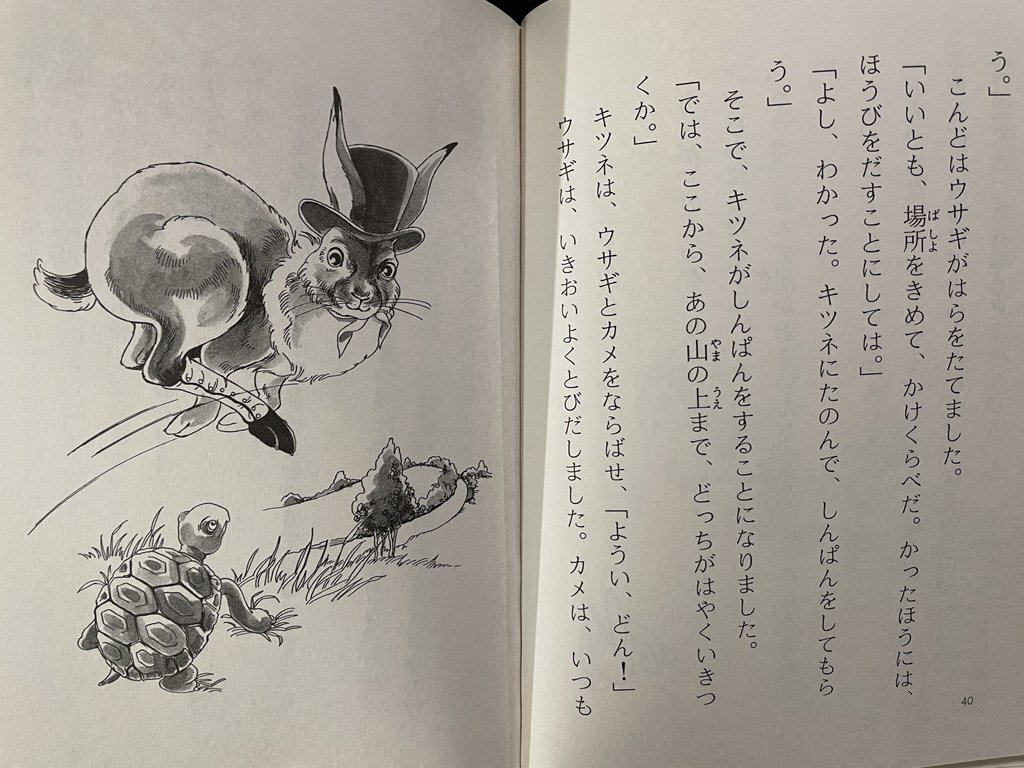 う。」
こんどはウサギがはらをたてました。
「いいとも、場所をきめて、かけくらべだ。かったほうには、
ばしよ
ほうびをだすことにしては。」
「よし、わかった。キツネにたのんで、しんぱんをしてもら
う。」
そこで、キツネがしんぱんをすることになりました。
「では、ここから、あの山の上まで、どっちがはやくいきつ
やま
うえ
くか。」
キツネは、ウサギとカメをならばせ、「ようい、どん！」
ウサギは、いきおいよくとびだしました。カメは、いつも
40